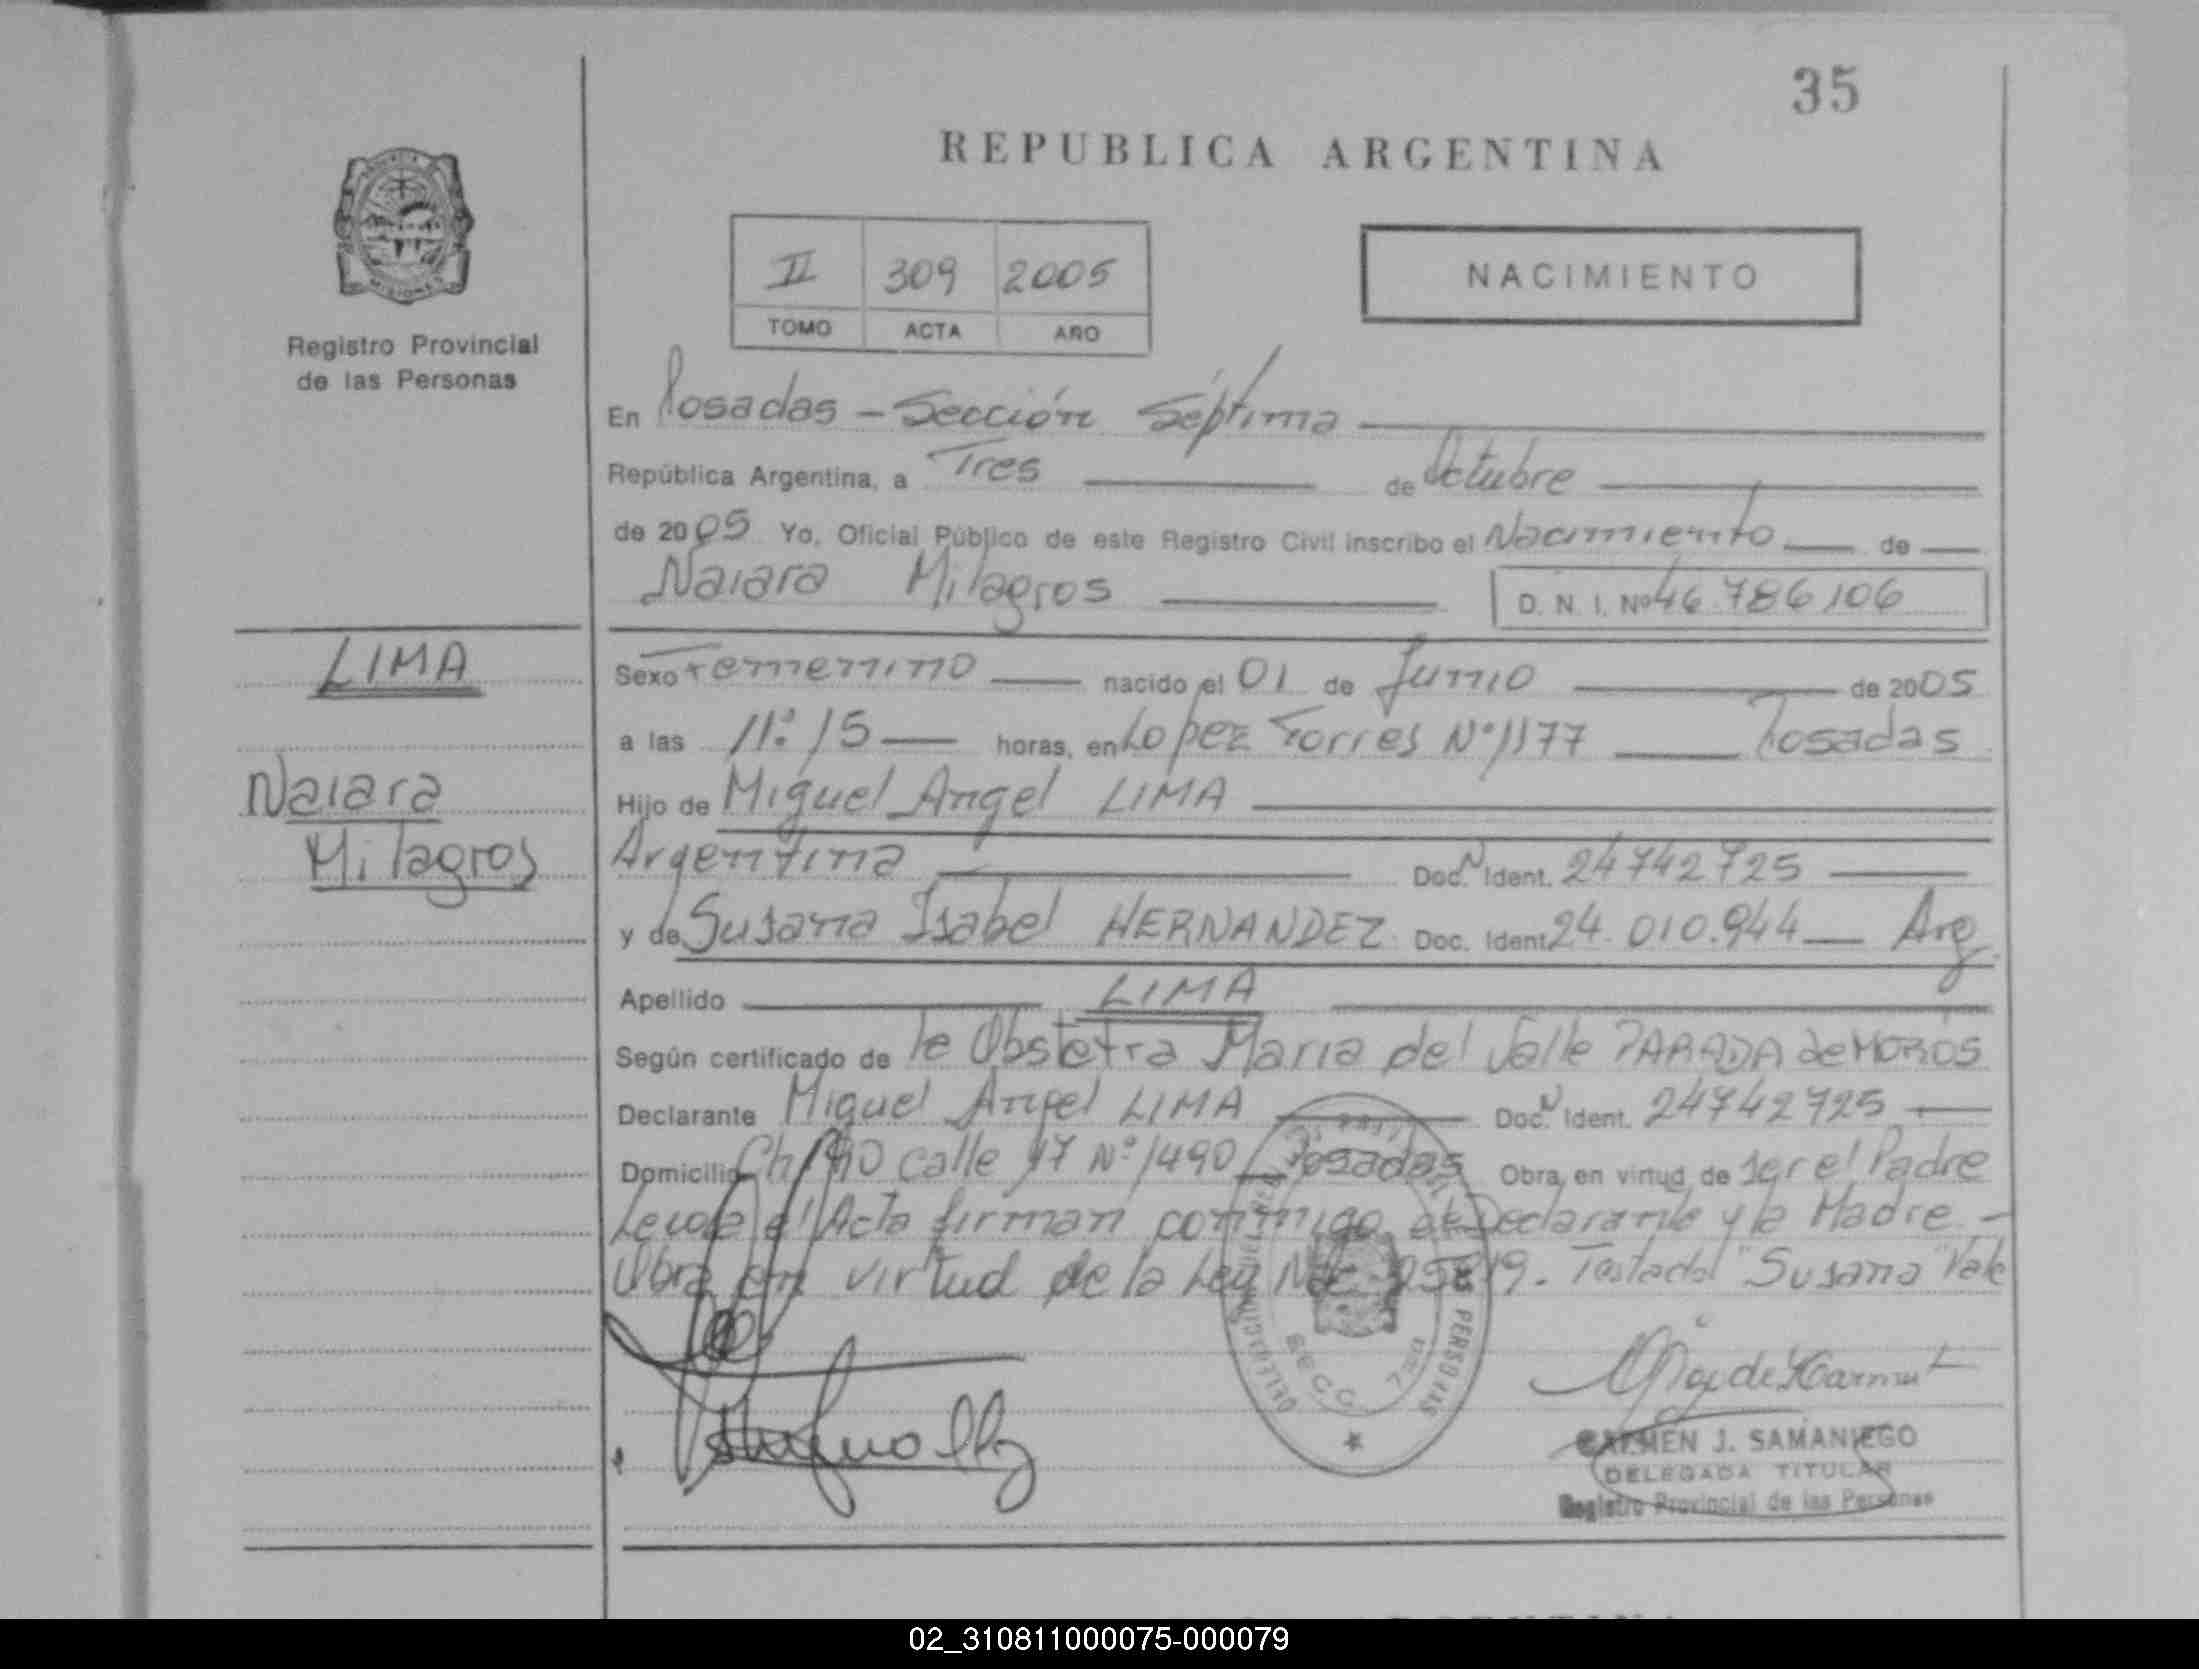 35
REPUBLICA ARGENTINA
II 309 2005
TOMO ACTA AÑO
NACIMIENTO
MISIONES
Registro Provincial
de las Personas
En Posadas - Sección Séptima
República Argentina, a Tres de Octubre
de 2005 Yo, Oficial Público de este Registro Civil inscribo el Nacimiento de
Naiara Milagros D. N. I. Nº 46.786,106
LIMA
Naiara
Milagros
Sexo Femenino nacido el 01 de Junio de 2005
a las 11:15 horas, en Lopez Torres Nº 1177 Posadas
Hijo de Miguel Angel LIMA
Argentina Doc. N Ident. 24742725
y de Susana Isabel HERNANDEZ Doc. Ident. 24.010.944 Arg.
Apellido LIMA
Según certificado de la Obstetra Maria del Valle PARADA de MOROS
Declarante Miguel Angel LIMA Doc. N Ident. 24742725
Domicilio Ch 190 calle 17 Nº 1490 Posadas Obra en virtud de ser el Padre
Leida el Acta firman conmigo el Declarante y la Madre. -
Obra en virtud de la Ley Nac 25819. Testado "Susana" Vale
SECC. 7ma
PERSONAS
CARMEN J. SAMANIEGO
DELEGADA TITULAR
Registro Provincial de las Personas
02_310811000075-000079